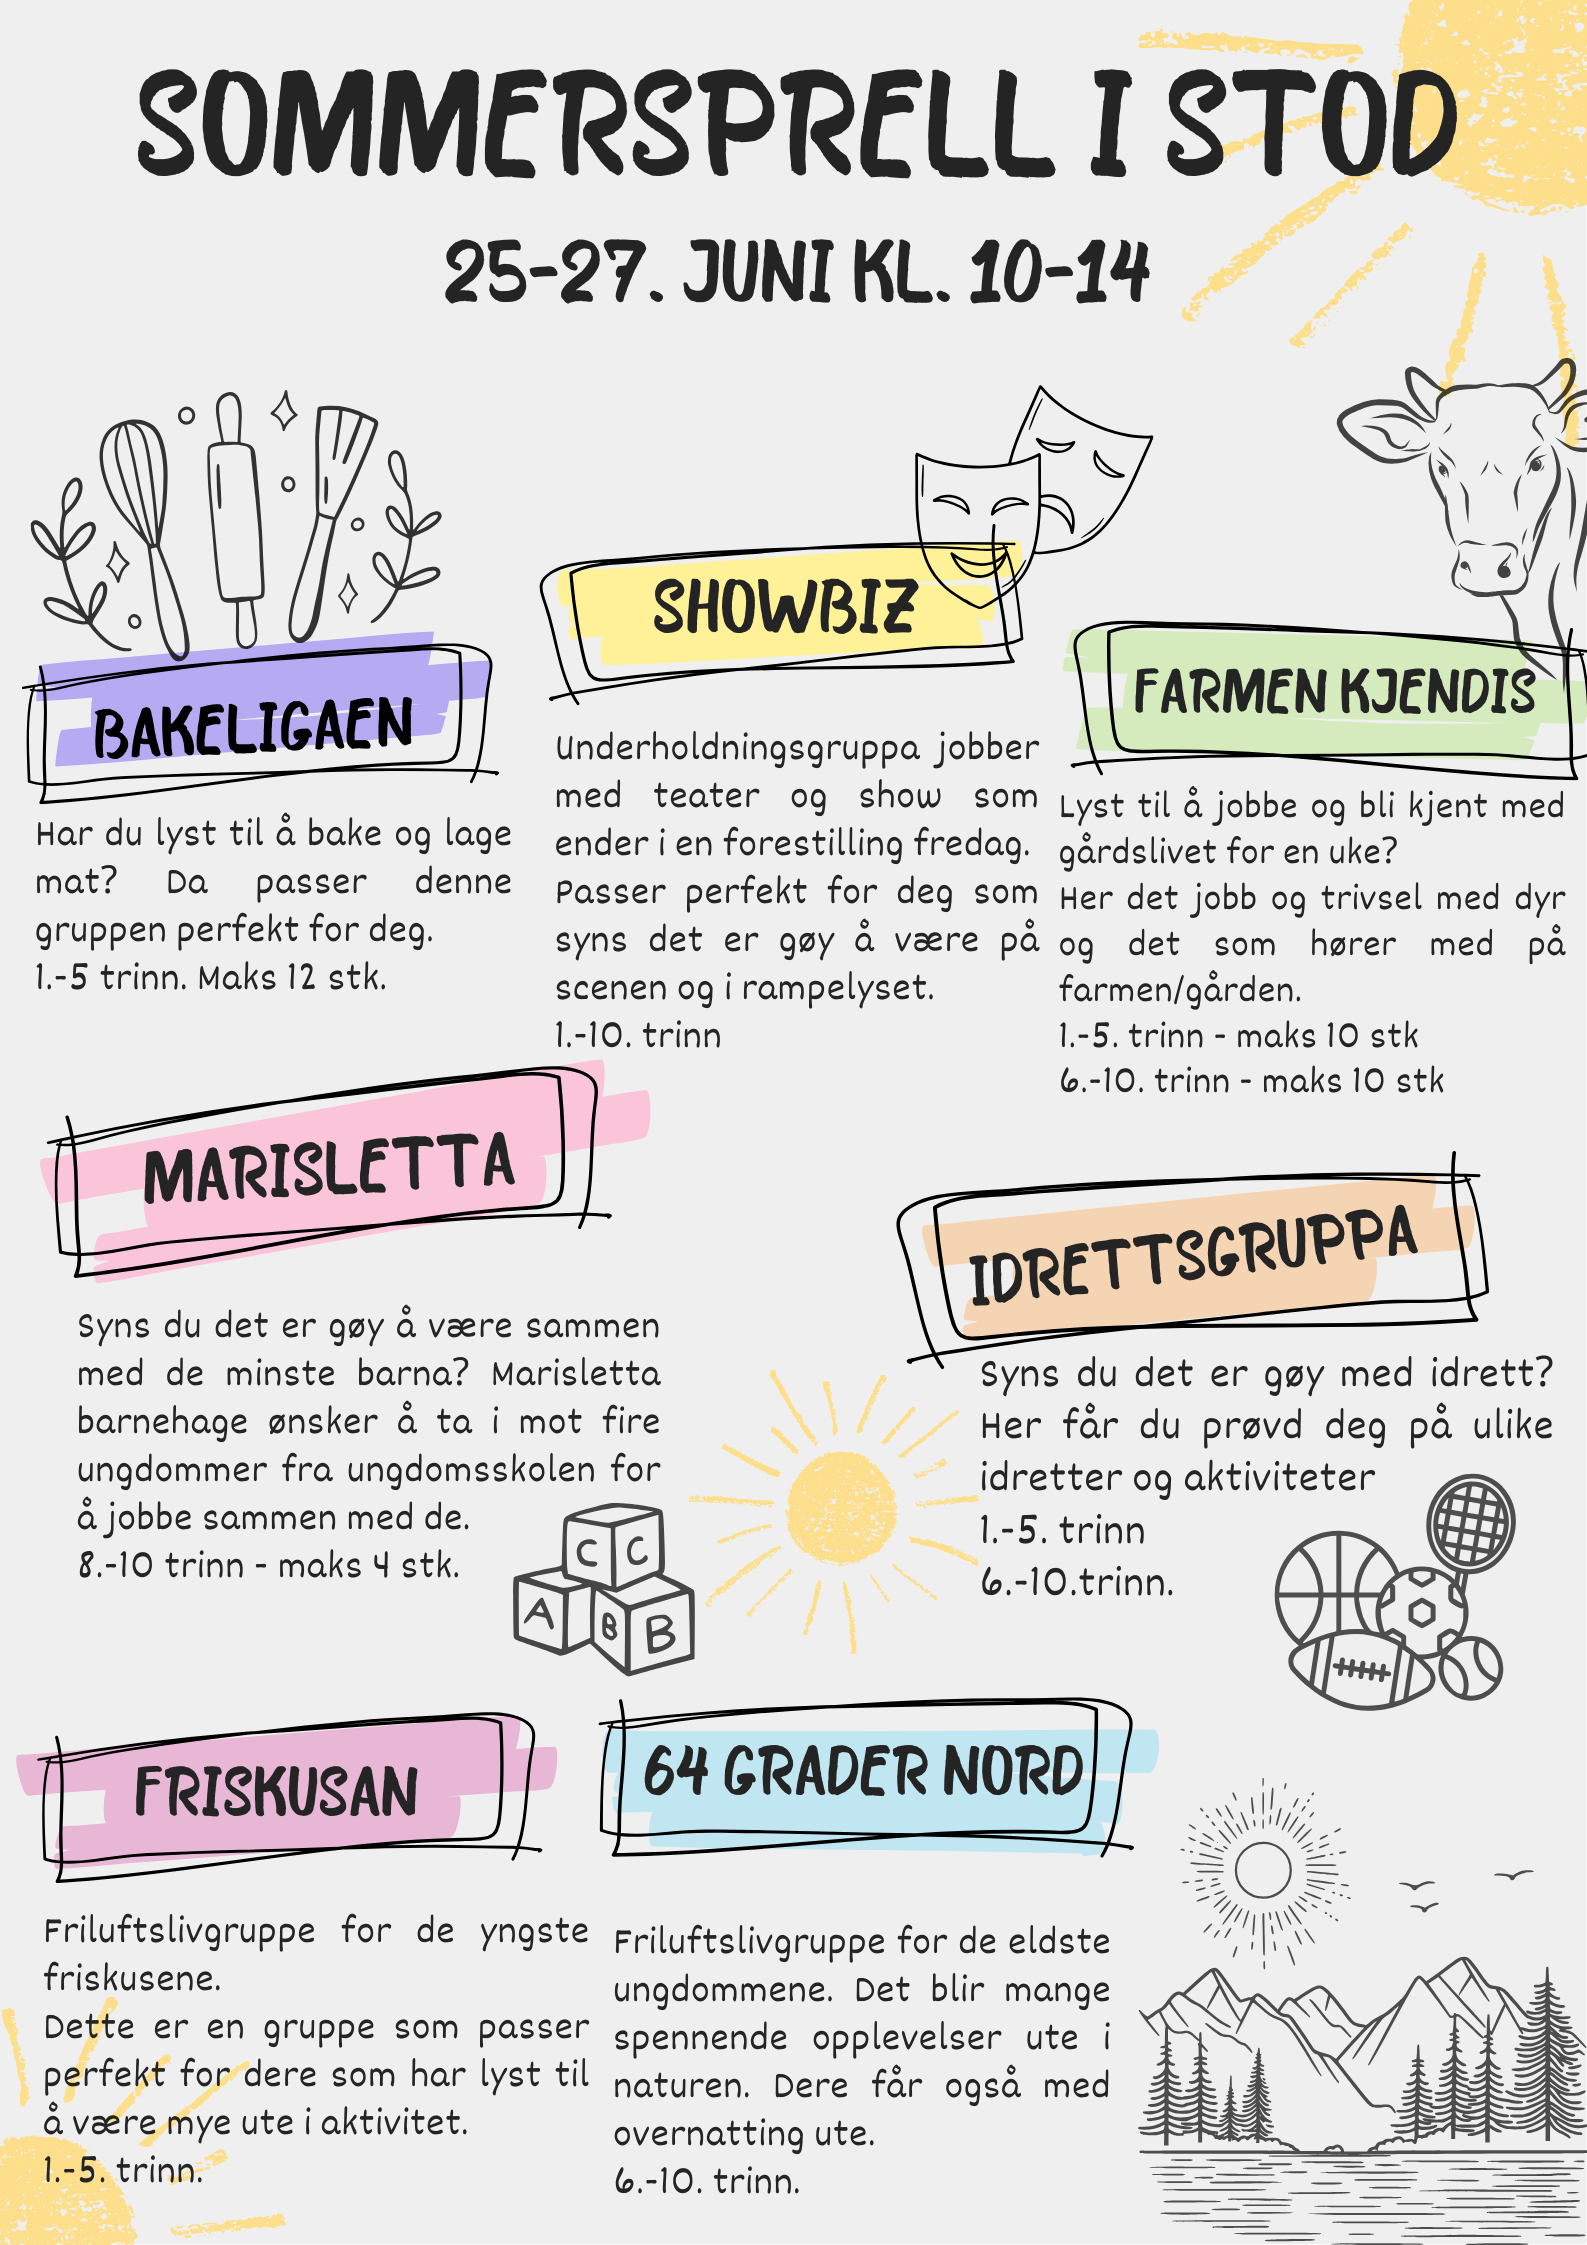 SOMMERSPRELL I STOD
25-27. JUNI KL. 10-14
BAKELIGAEN
Har du lyst til å bake og lage
mat? Da passer denne
gruppen perfekt for deg.
1.-5 trinn. Maks 12 stk.
SHOWBIZ
Underholdningsgruppa jobber
med teater og show som
ender i en forestilling fredag.
Passer perfekt for deg som
syns det er gøy å være på
scenen og i rampelyset.
1.-10. trinn
FARMEN KJENDIS
Lyst til å jobbe og bli kjent med
gårdslivet for en uke?
Her det jobb og trivsel med dyr
og det som hører med på
farmen/gården.
1.-5. trinn - maks 10 stk
6.-10. trinn - maks 10 stk
MARISLETTA
Syns du det er gøy å være sammen
med de minste barna? Marisletta
barnehage ønsker å ta i mot fire
ungdommer fra ungdomsskolen for
å jobbe sammen med de.
8.-10 trinn - maks 4 stk.
C C
A B B
IDRETTSGRUPPA
Syns du det er gøy med idrett?
Her får du prøvd deg på ulike
idretter og aktiviteter
1.-5. trinn
6.-10.trinn.
FRISKUSAN
Friluftslivgruppe for de yngste
friskusene.
Dette er en gruppe som passer
perfekt for dere som har lyst til
å være mye ute i aktivitet.
1.-5. trinn.
64 GRADER NORD
Friluftslivgruppe for de eldste
ungdommene. Det blir mange
spennende opplevelser ute i
naturen. Dere får også med
overnatting ute.
6.-10. trinn.